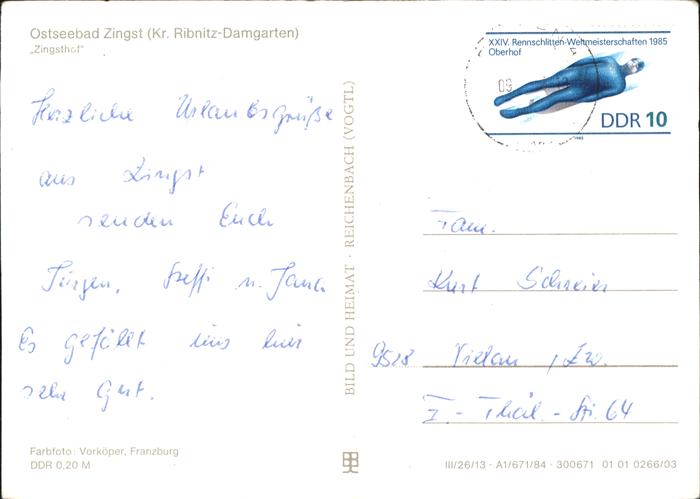 Ostseebad Zingst (Kr. Ribnitz-Damgarten)
„Zingsthof"
Herzliche Urlaubsgrüße
aus Zingst
senden Euch
Jürgen, Steffi u. Jana
Es gefällt uns hier
sehr gut.
Farbfoto: Vorköper, Franzburg
DDR 0,20 M
BILD UND HEIMAT · REICHENBACH (VOGTL)
XXIV. Rennschlitten-Weltmeisterschaften 1985
Oberhof
09
DDR 10
1985
Fam.
Kurt Schreier
9528 Vielau, Zw.
E.-Thäl.-Str. 64
III/26/13 · A1/671/84 · 300671 01 01 0266/03